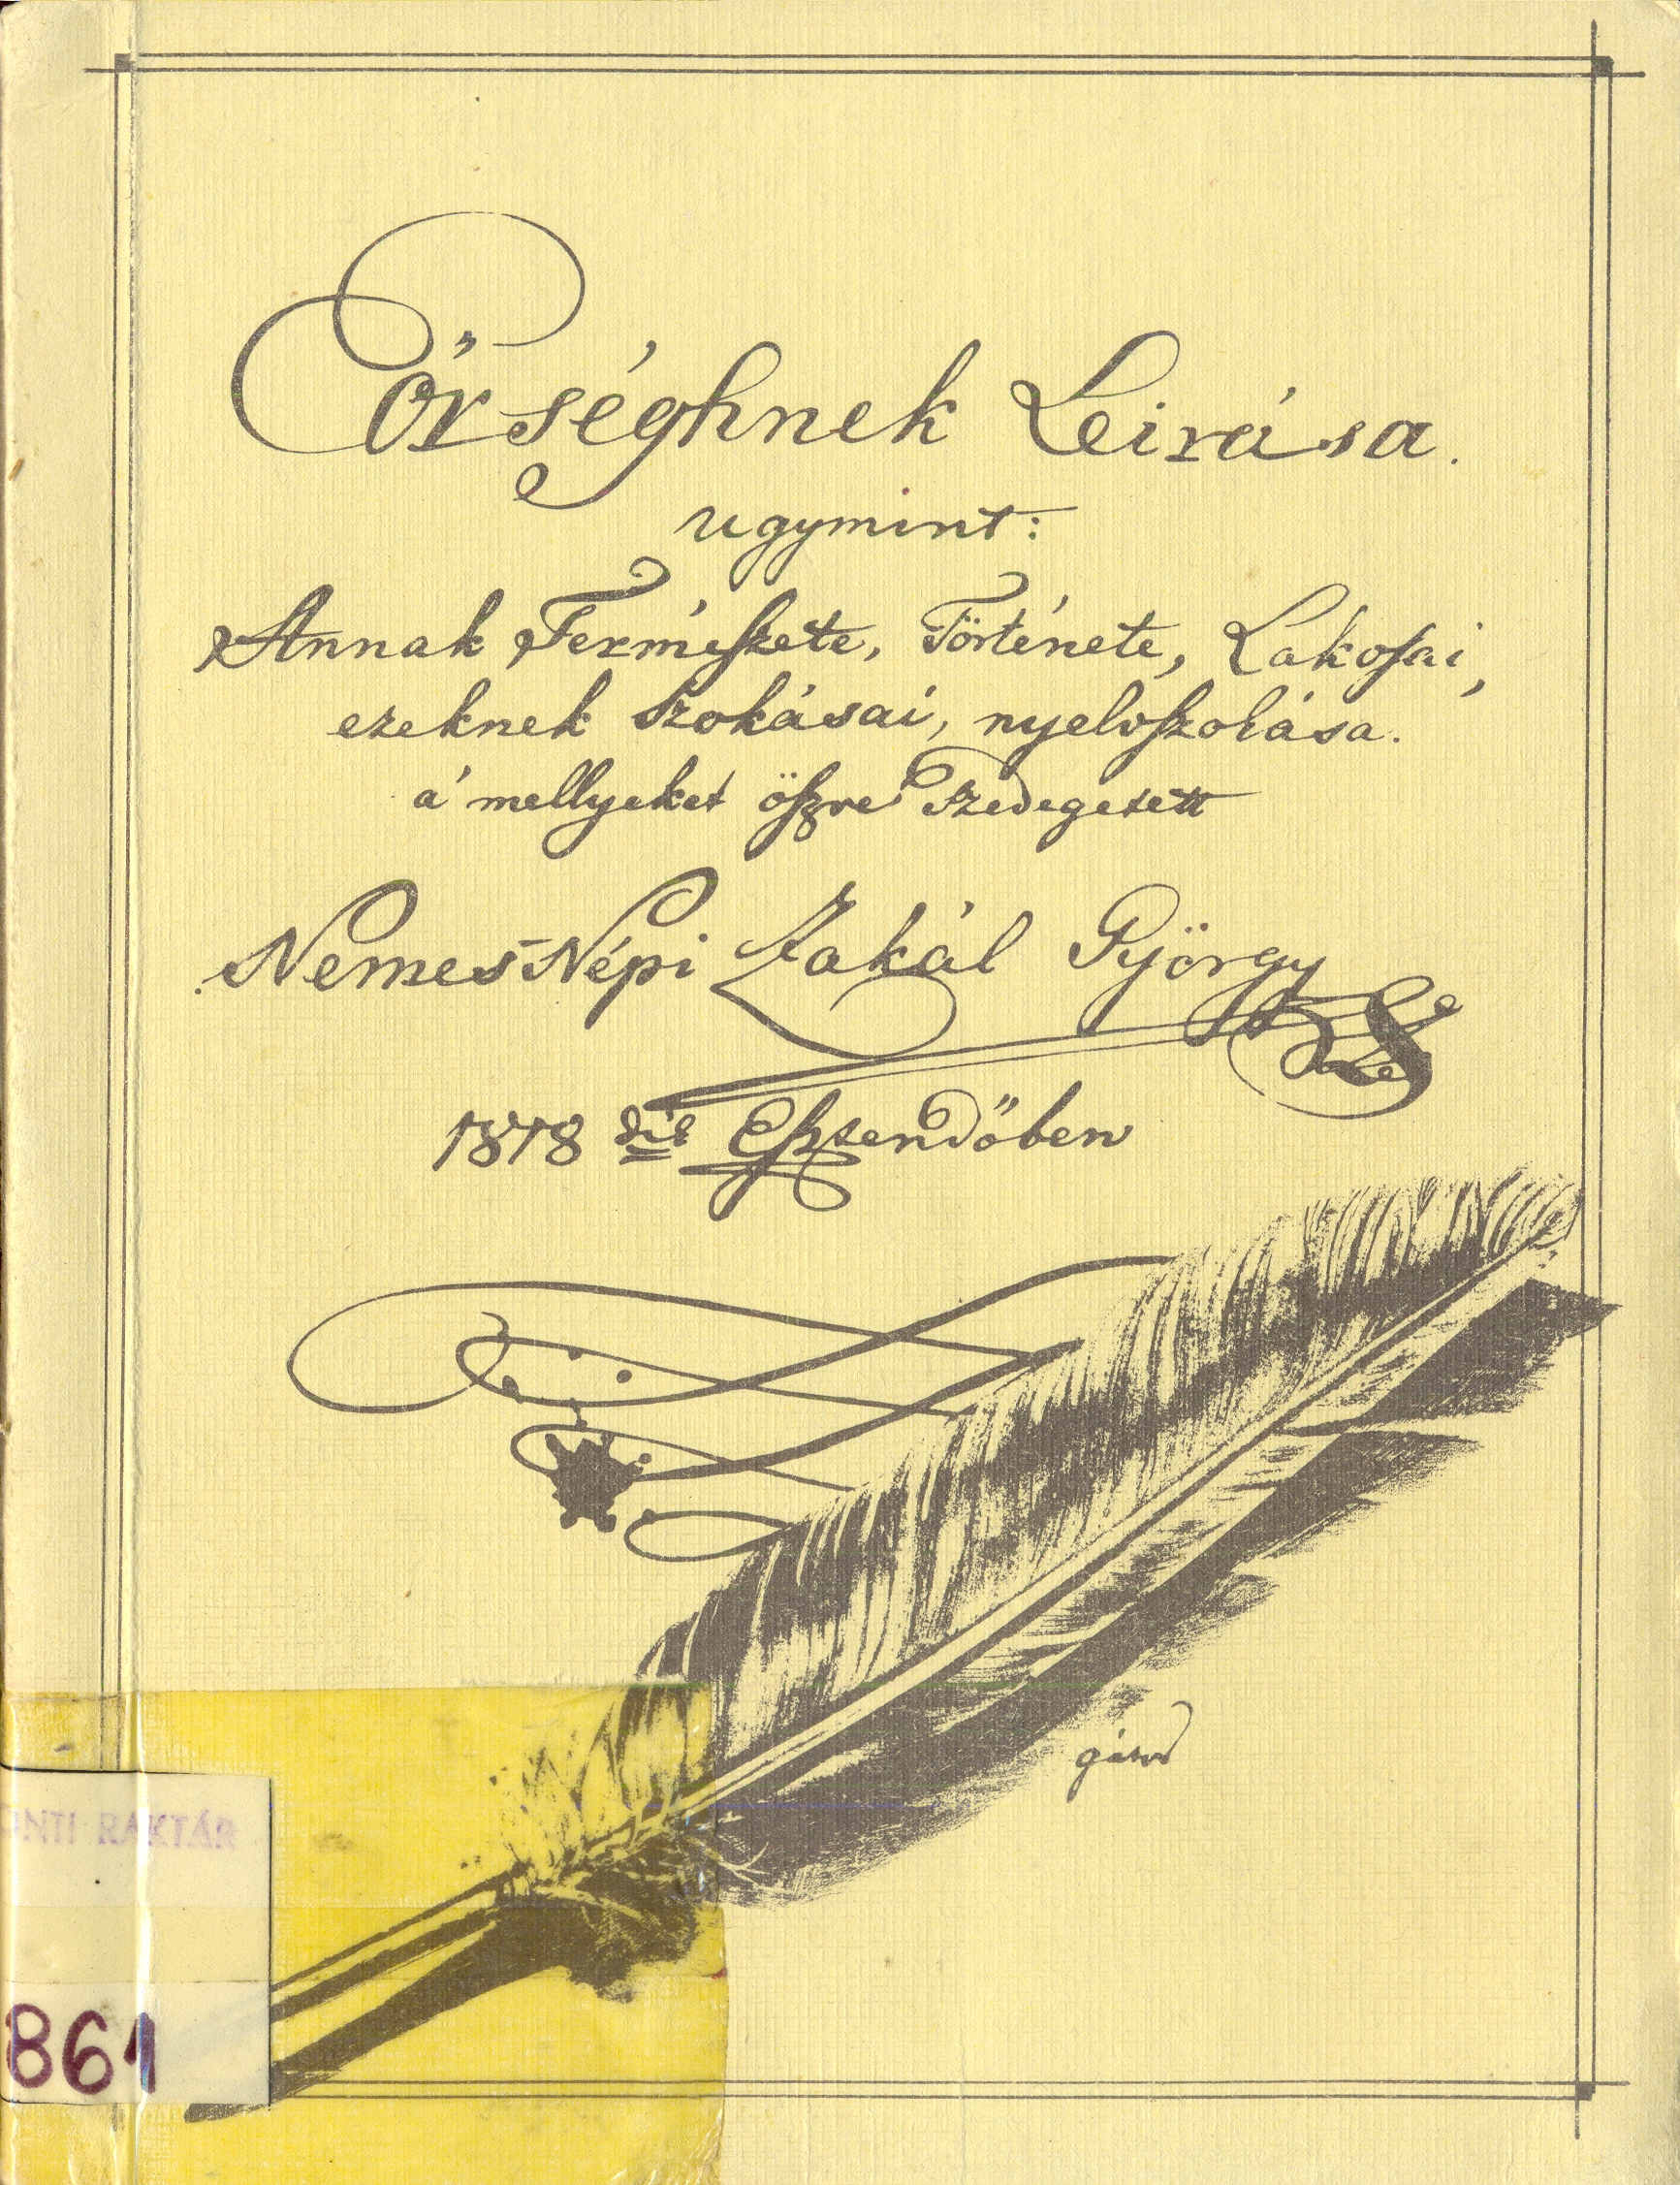 Eőrséghnek Leirása.
ugymint:
Annak Természete, Története, Lakosai,
ezeknek Szokásai, nyelvszolása.
a' mellyeket öszve Szedegetett
Nemes Népi Zakál György
1818 dik Esztendőben
ONTI RAKTÁR
861